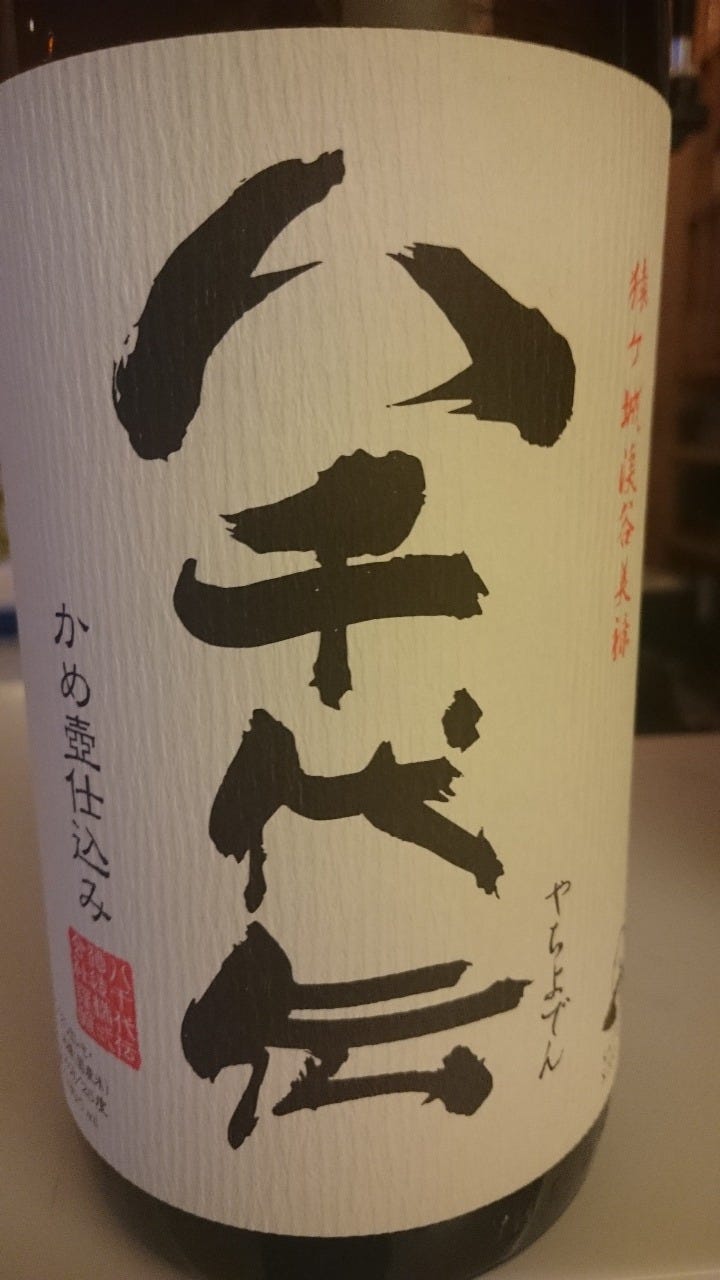 猿ケ城渓谷美禄
八千代伝
やちよでん
かめ壺仕込み